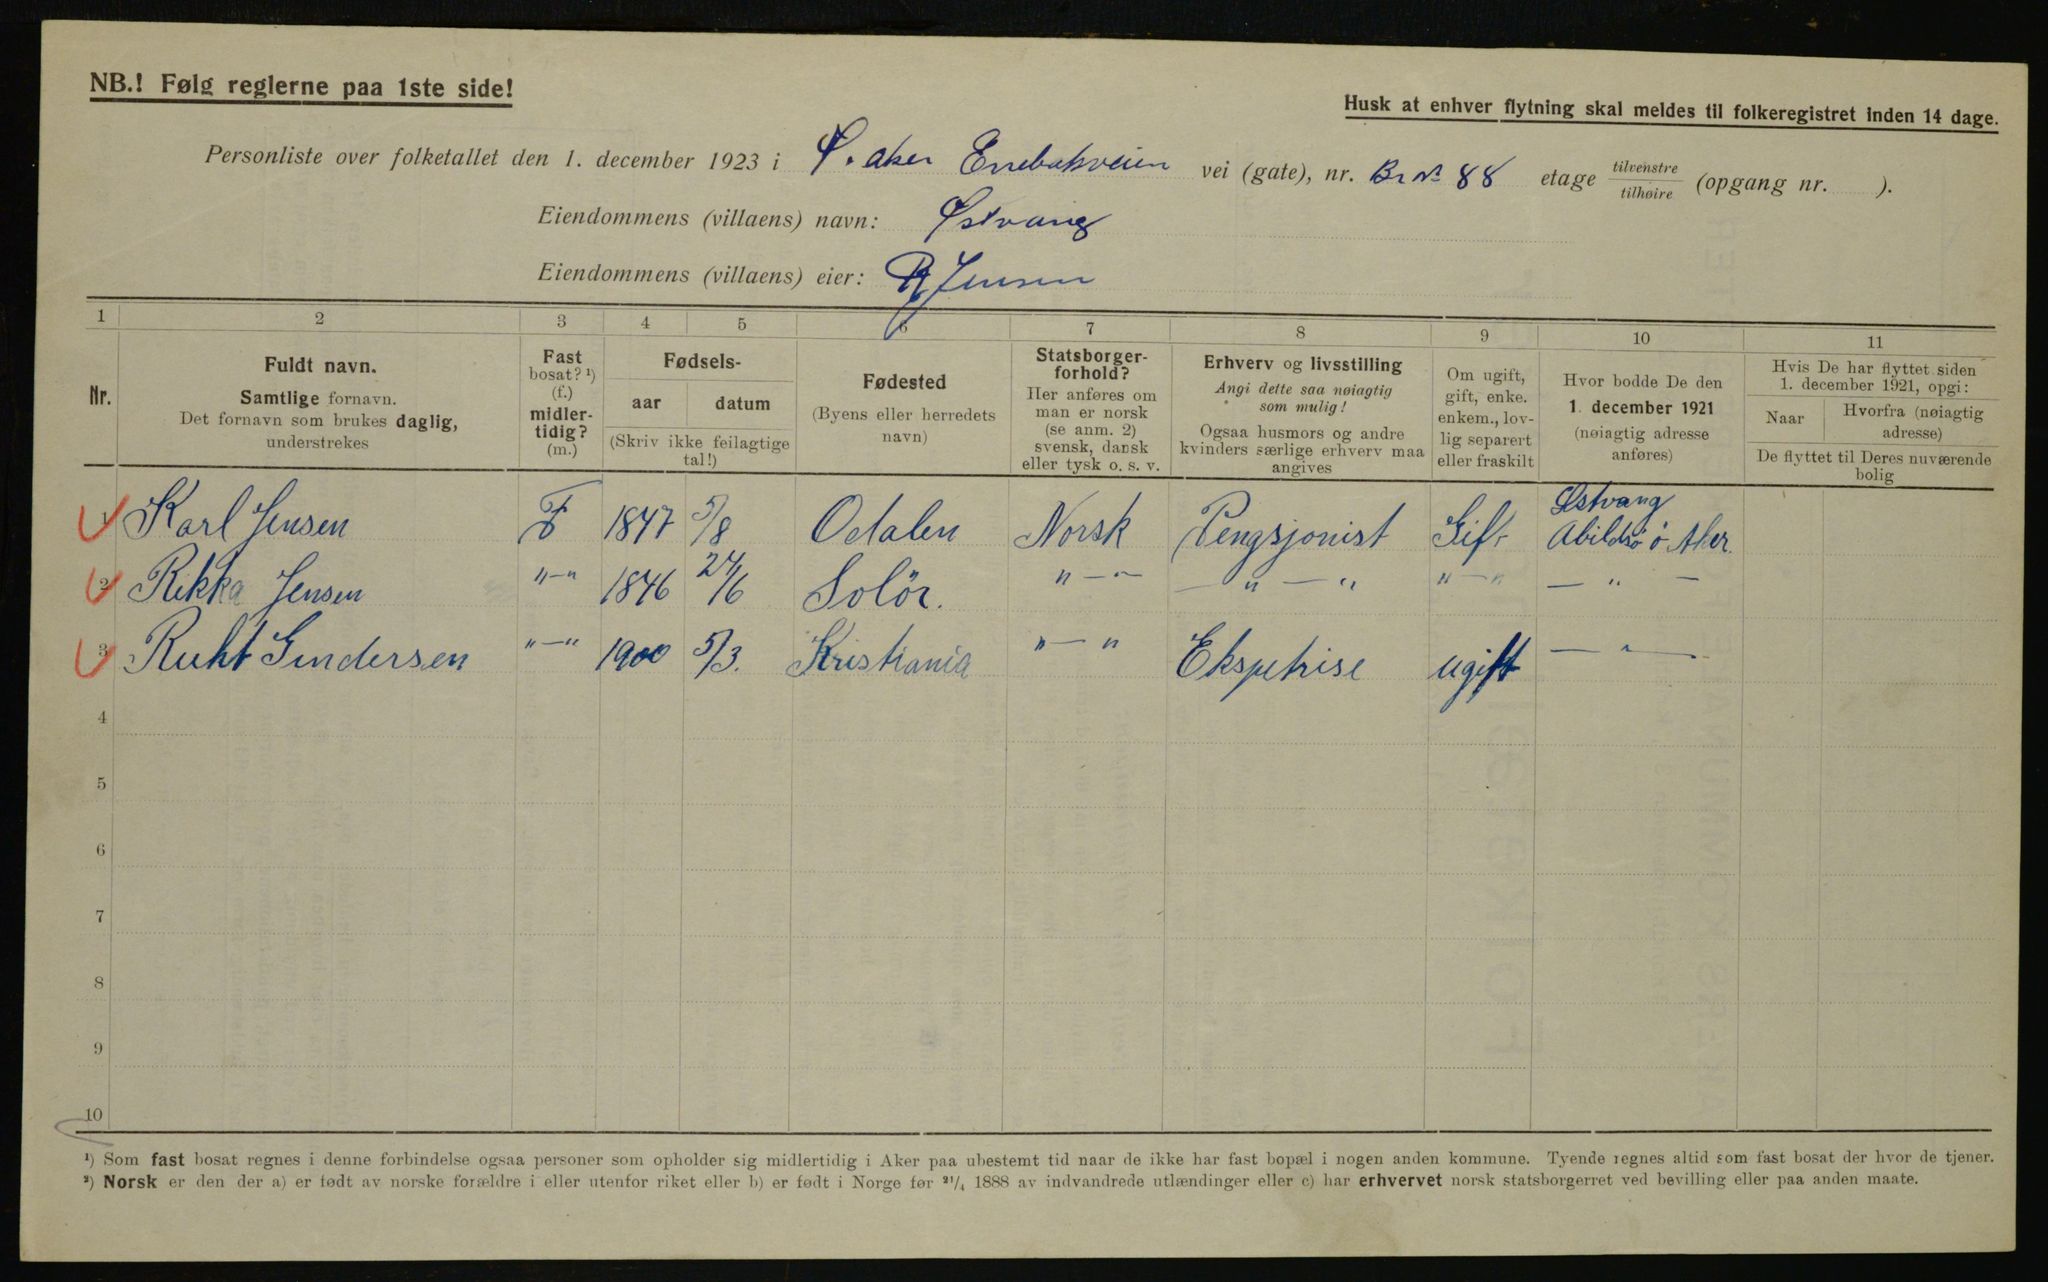 NB.! Følg reglerne paa 1ste side!
Husk at enhver flytning skal meldes til folkeregistret inden 14 dage.
Personliste over folketallet den 1. december 1923 i Ø. aker Enebakveien vei (gate), nr. Br No 88 etage tilvenstre/tilhøire (opgang nr. ).
Eiendommens (villaens) navn: Østvang
Eiendommens (villaens) eier: Jensen
1 2 3 4 5 6 7 8 9 10 11
Nr.
Fuldt navn.
Samtlige fornavn.
Det fornavn som brukes daglig,
understrekes
Fast
bosat? ¹)
(f.)
midler-
tidig?
(m.)
Fødsels-
aar datum
(Skriv ikke feilagtige
tal!)
Fødested
(Byens eller herredets
navn)
Statsborger-
forhold?
Her anføres om
man er norsk
(se anm. 2)
svensk, dansk
eller tysk o. s. v.
Erhverv og livsstilling
Angi dette saa nøiagtig
som mulig!
Ogsaa husmors og andre
kvinders særlige erhverv maa
angives
Om ugift,
gift, enke.
enkem., lov-
lig separert
eller fraskilt
Hvor bodde De den
1. december 1921
(nøiagtig adresse
anføres)
Hvis De har flyttet siden
1. december 1921, opgi:
Naar Hvorfra (nøiagtig
adresse)
De flyttet til Deres nuværende
bolig
1 Karl Jensen F 1847 5/8 Odalen Norsk Pengsjonist Gift Østvang
Abildsö ö Aker.
2 Rikka Jensen "—" 1846 24/6 Solör. "—" — " — " "—" — " —
3 Ruht Gundersen "—" 1900 5/3. Kristiania "— " Ekspetrise ugift — " —
4
5
6
7
8
9
10
¹) Som fast bosat regnes i denne forbindelse ogsaa personer som opholder sig midlertidig i Aker paa ubestemt tid naar de ikke har fast bopæl i nogen anden kommune. Tyende regnes altid som fast bosat der hvor de tjener.
²) Norsk er den der a) er født av norske forældre i eller utenfor riket eller b) er født i Norge før ²¹/₄ 1888 av indvandrede utlændinger eller c) har erhvervet norsk statsborgerret ved bevilling eller paa anden maate.